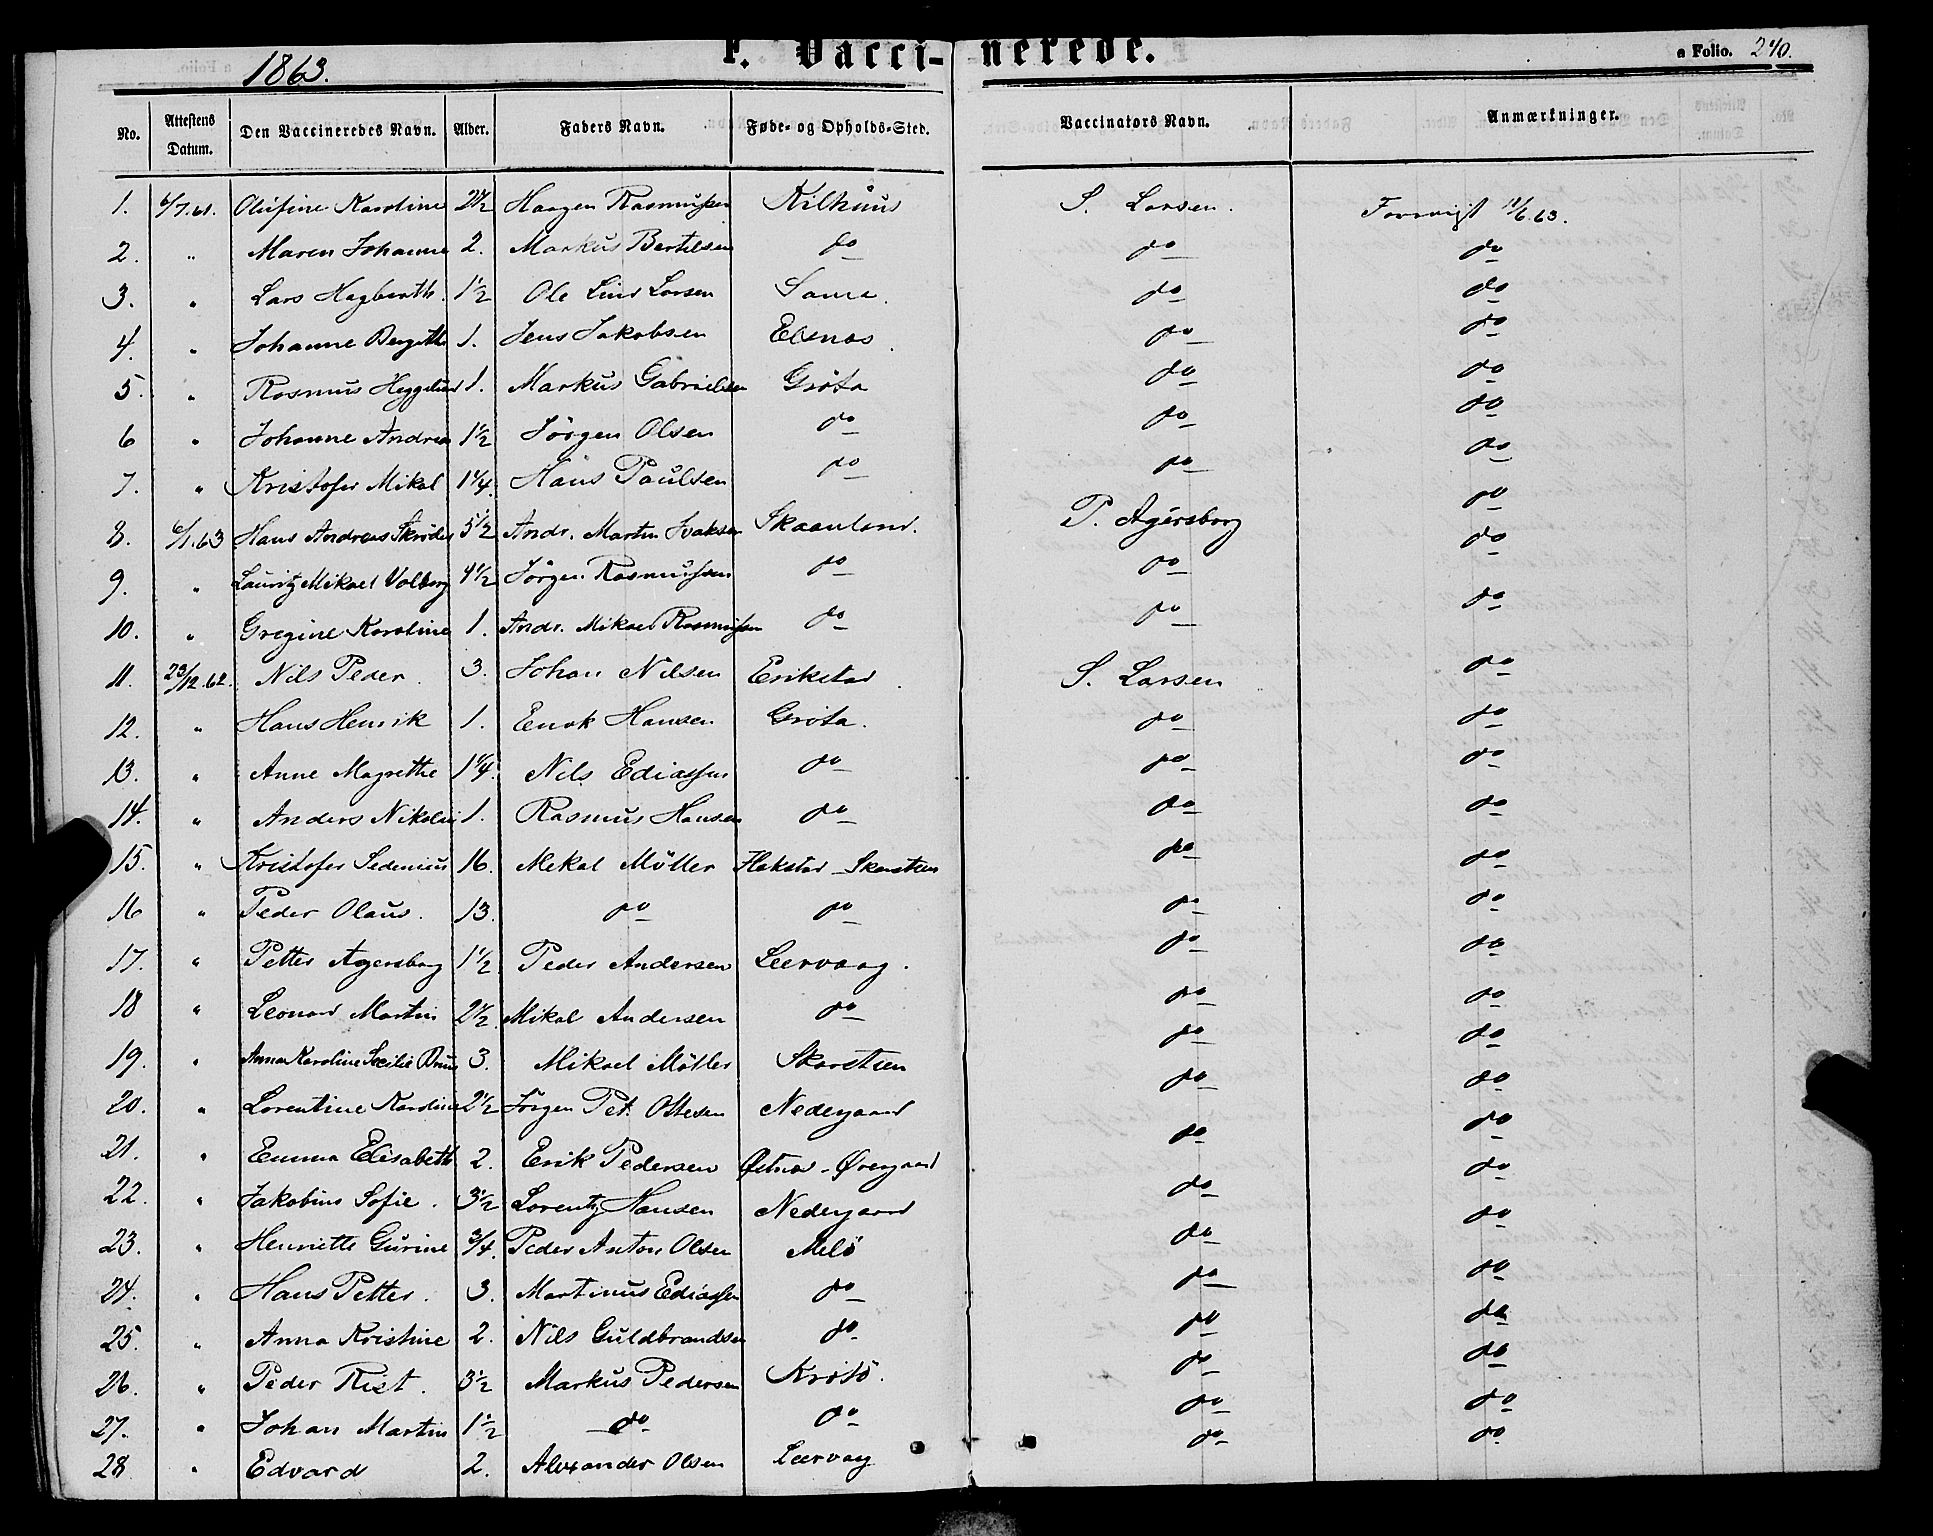 1863.
F. Vacci-nerede.
a Folio. 240.
No. Attestens Datum. Den Vaccineredes Navn. Alder. Faders Navn. Føde- og Opholds-Sted. Vaccinators Navn. Anmærkninger.
1. 6/7.61. Olufine Karoline 2 1/2 Haagen Rasmussen Kilhuus S. Larsen. Forevigt 11/6.63.
2. " Maren Johanne 2. Markus Bertelsen do do do
3. " Lars Hagbarth. 1 1/2 Ole Lind Larsen Sama. do do
4. " Johanne Bergithe 1. Jens Jakobsen Elsnes. do do
5. " Rasmus Heggelund 1. Markus Gabrielsen Gröta do do
6 " Johanne Andrea 1 1/2 Jörgen Olsen do do do
7. " Kristofer Mikal 1 1/4. Hans Paulsen do do do
8. 6/1.63 Hans Andreas Skröder 5 1/2 Andr. Martin Isaksen Skaanland. P. Agersborg do
9. " Lauritz Mikael Volborg 4 1/2 Jörgen Rasmussen do do do
10. " Gregine Karoline 1. Andr. Mikael Rasmussen do do do
11. 23/12.62. Nils Peder. 3. Johan Nilsen Erikstad. S. Larsen do
12. " Hans Henrik 1. Enok Hansen Gröta. do do
13. " Anne Magrethe 1 1/4. Nils Ediassen do do do
14. " Anders Nikolai 1. Rasmus Hansen do do do
15. " Kristofer Sedenius 16. Mekal Möller Flakstad - Skarsteen do do
16 " Peder Olaus. 13. do do do do
17. " Petter Agersborg 1 1/2 Peder Andersen Leervaag. do do
18 " Leonard Martin 2 1/2. Mikal Andersen do do do
19. " Anna Karoline Secilie Bruun 3. Mikael Möller Skarsteen do do
20. " Lorentine Karoline 2 1/2 Jörgen Pet. Ottesen Nedegaard do do
21. " Emma Elisabeth 2. Erik Pedersen Østnes - Øvergaard do do
22. " Jakobine Sofie. 3 1/2 Lorentz Hansen Nedegaard do do
23. " Henriette Gurine 3/4. Peder Anton Olsen Melö do do
24. " Hans Petter. 3. Martinus Ediassen do do do
25. " Anna Kristine 2. Nils Guldbrandsen do do do
26. " Peder Rist. 3 1/2 Markus Pedersen Krötö. do do
27. " Johan Martin 1 1/2 do do do do
28 " Edvard 2. Alexander Olsen Leervaag do do